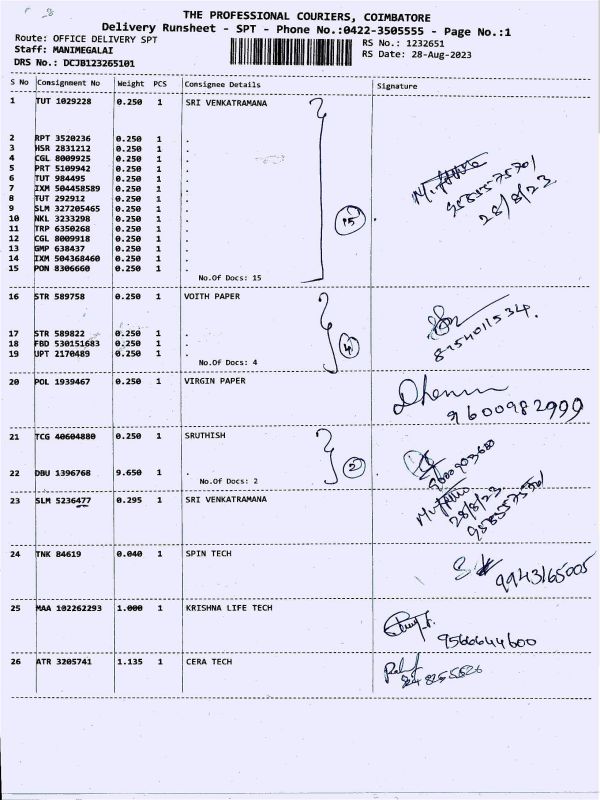 THE PROFESSIONAL COURIERS, COIMBATORE
Delivery Runsheet - SPT - Phone No.:0422-3505555 - Page No.:1
Route: OFFICE DELIVERY SPT
RS No.: 1232651
Staff: MANIMEGALAI
RS Date: 28-Aug-2023
DRS No.: DCJB123265101
S No Consignment No Weight PCS Consignee Details Signature
1 TUT 1029228 0.250 1 SRI VENKATRAMANA
2 RPT 3520236 0.250 1 .
3 HSR 2831212 0.250 1 .
4 CGL 8009925 0.250 1 .
5 PRT 5109942 0.250 1 .
6 TUT 984495 0.250 1 .
7 IXM 504458589 0.250 1 .
8 TUT 292912 0.250 1 .
9 SLM 327205465 0.250 1 .
10 NKL 3233298 0.250 1 .
11 TRP 6350268 0.250 1 .
12 CGL 8009918 0.250 1 .
13 GMP 638437 0.250 1 .
14 IXM 504368460 0.250 1 .
15 PON 8306660 0.250 1 .
No.Of Docs: 15
15
28/8/23
16 STR 589758 0.250 1 VOITH PAPER
17 STR 589822 0.250 1 .
18 FBD 530151683 0.250 1 .
19 UPT 2170489 0.250 1 .
No.Of Docs: 4
4
8754011534.
20 POL 1939467 0.250 1 VIRGIN PAPER
9600982999
21 TCG 40604880 0.250 1 SRUTHISH
22 DBU 1396768 9.650 1 .
No.Of Docs: 2
2
23 SLM 5236477 0.295 1 SRI VENKATRAMANA
28/8/23
24 TNK 84619 0.040 1 SPIN TECH
9943165005
25 MAA 102262293 1.000 1 KRISHNA LIFE TECH
9566644600
26 ATR 3205741 1.135 1 CERA TECH